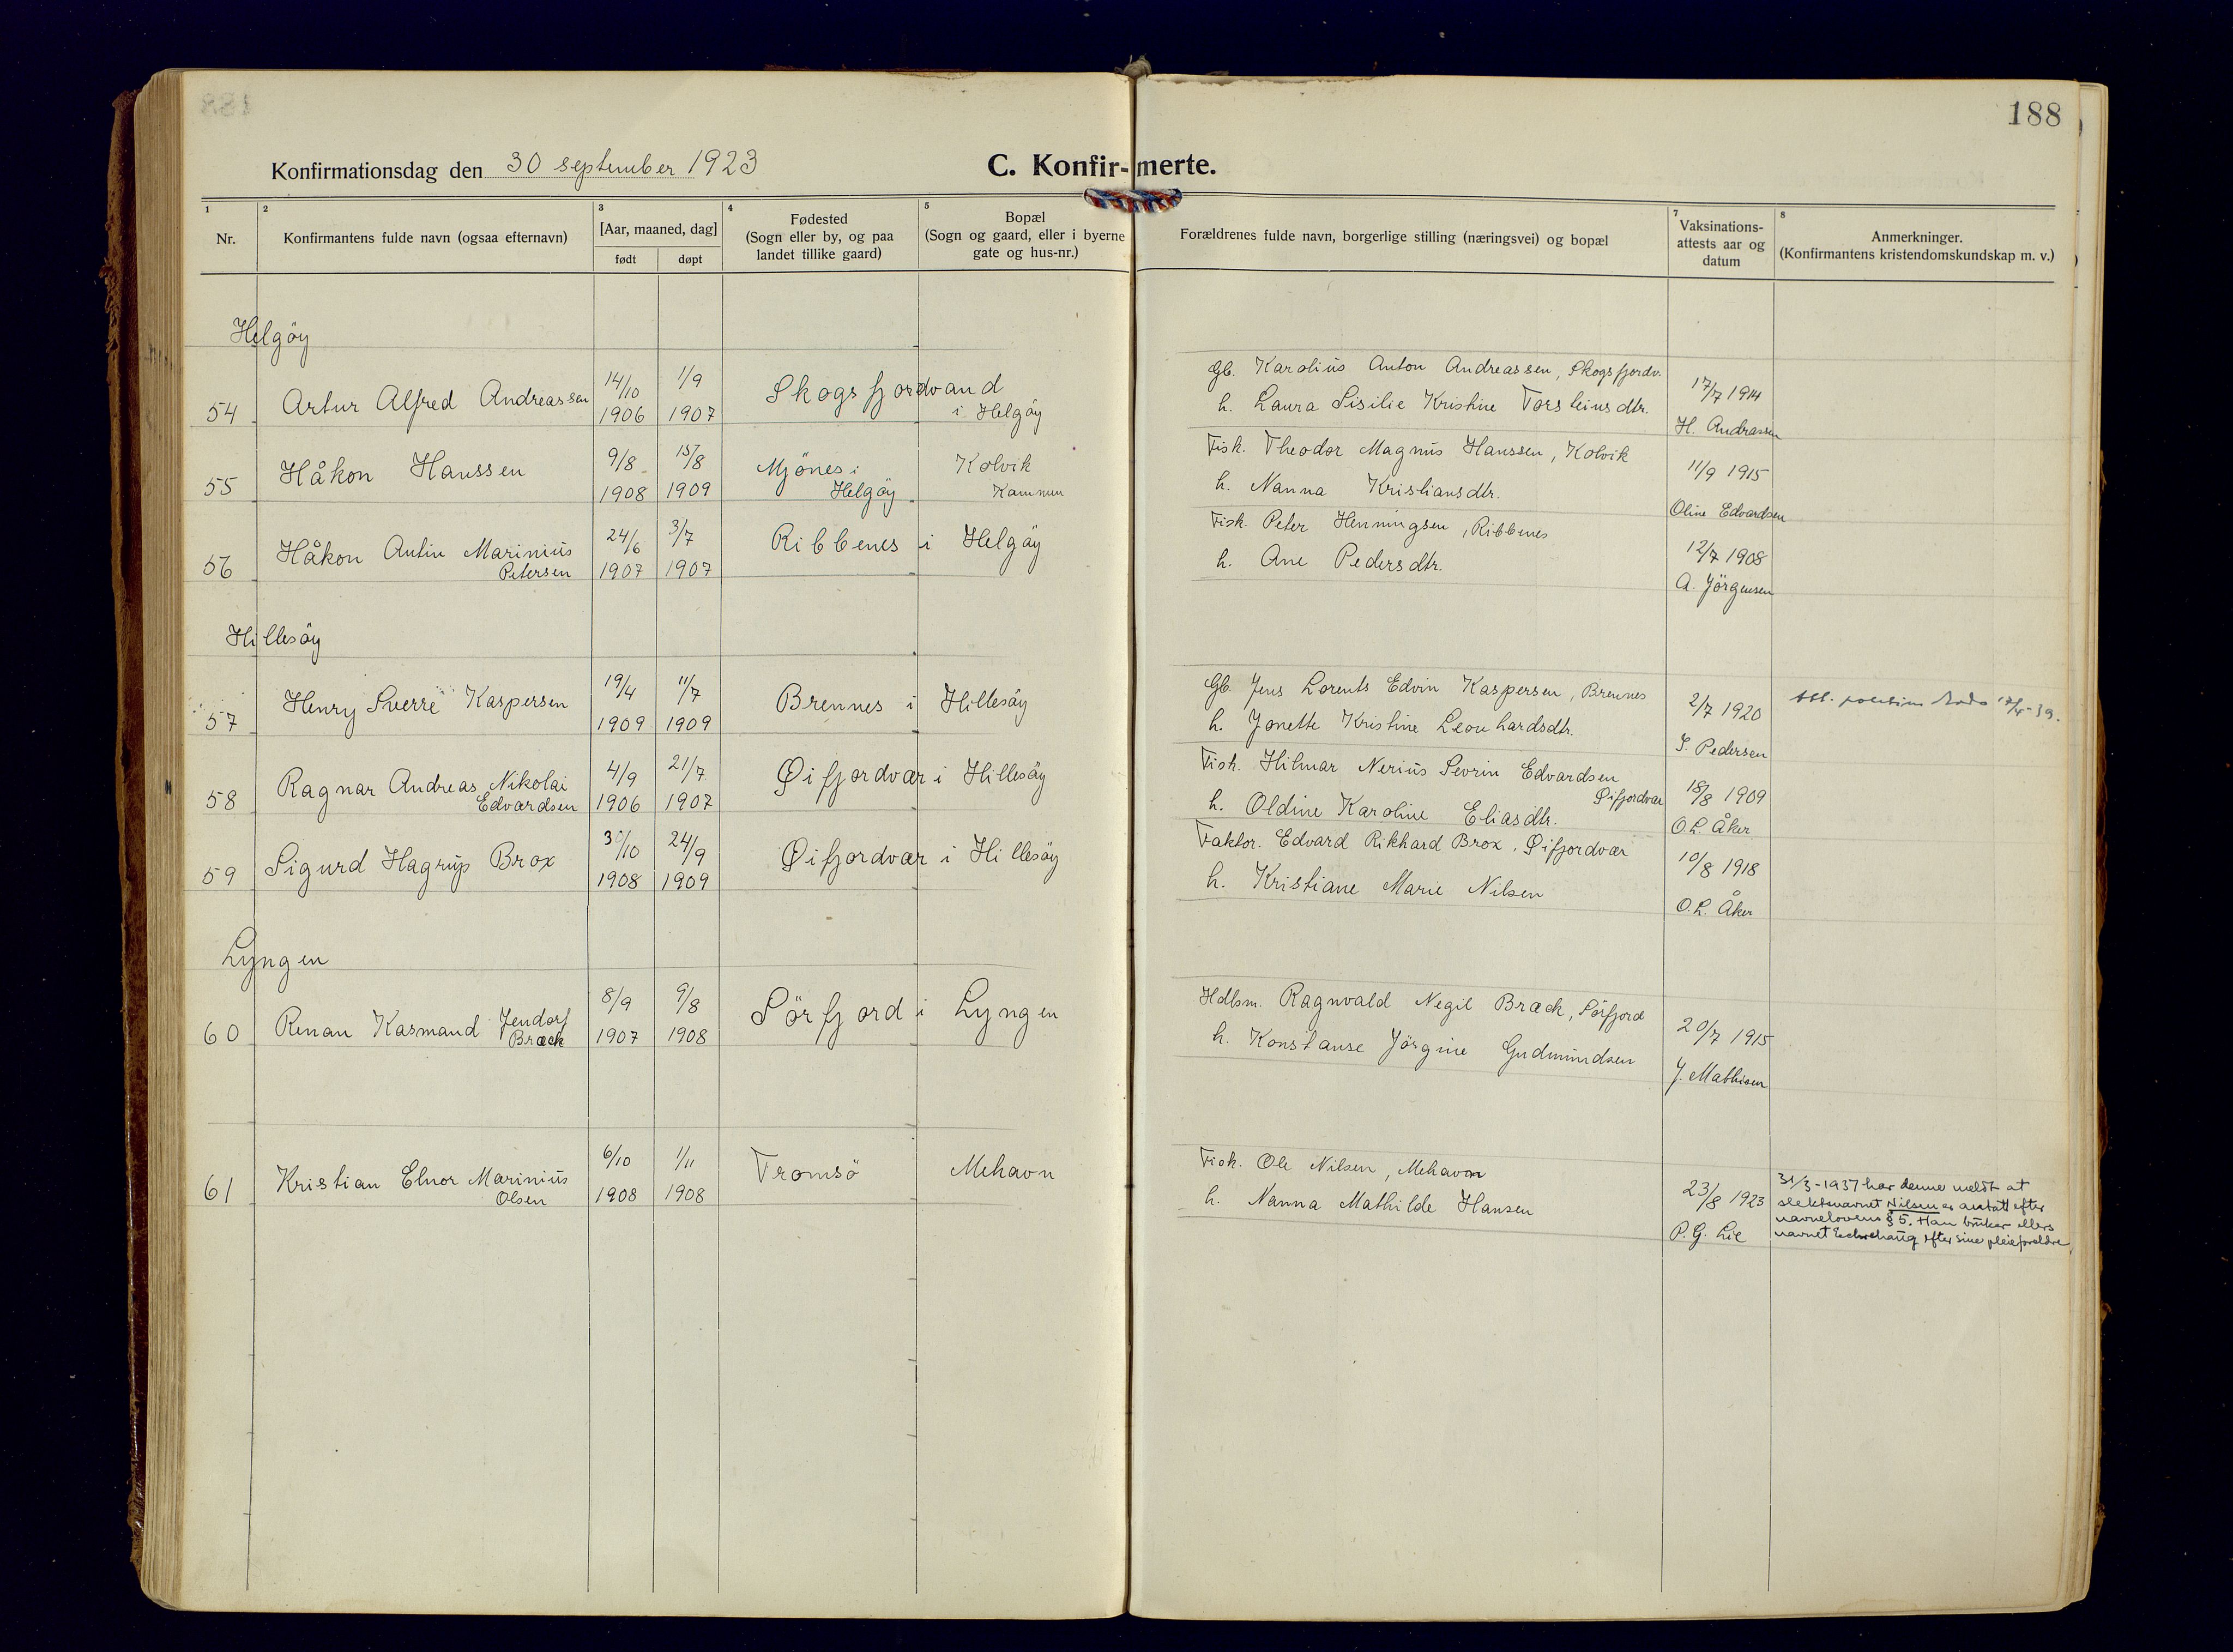 188
Konfirmationsdag den 30 september 1923
C. Konfir-merte.
1 2 3 4 5 7 8
Nr.
Konfirmantens fulde navn (ogsaa efternavn)
[Aar, maaned, dag]
født døpt
Fødested
(Sogn eller by, og paa
landet tillike gaard)
Bopæl
(Sogn og gaard, eller i byerne
gate og hus-nr.)
Forældrenes fulde navn, borgerlige stilling (næringsvei) og bopæl
Vaksinations-
attests aar og
datum
Anmerkninger.
(Konfirmantens kristendomskundskap m. v.)
Helgöy
54 Artur Alfred Andreassen 14/10 1906 1/9 1907 Skogsfjordvand
i Helgöy
Gb. Karolius Anton Andreassen, Skogsfjordv.
h. Laura Sisilie Kristine Torsteinsdtr.
17/7 1914
H. Andrassen
55 Håkon Hanssen 9/8 1908 15/8 1909 Mjönes i
Helgöy
Kolvik
Kammen
Fisk. Theodor Magnus Hanssen, Kolvik
h. Nanna Kristiansdtr.
11/9 1915
Oline Edvardsen
56 Håkon Antin Marinius
Petersen
24/6 1907 3/7 1907 Ribbenes i Helgöy
Fisk. Peter Henningsen, Ribbenes
h. Ane Pedersdtr.
12/7 1908
A. Jörgensen
Hillesöy
57 Henry Sverre Kaspersen 19/4 1909 11/7 1909 Brennes i Hillesöy
Gb. Jens Lorents Edvin Kaspersen, Brennes
h. Jonette Kristine Leonhardsdtr.
2/7 1920
S. Pedersen
58 Ragnar Andreas Nikolai
Edvardsen
4/9 1906 21/7 1907 Øifjordvær i Hillesöy
Fisk. Hilmar Nerius Sevrin Edvardsen
Øifjordvær
h. Oldine Karoline Eliasdtr.
18/8 1909
O.L. Åker
59 Sigurd Hagrup Brox 31/10 1908 24/9 1909 Øifjordvær i Hillesöy
Faktor. Edvard Rikhard Brox, Øifjordvær
h. Kristiane Marie Nilsen
10/8 1918
O.L. Åker
Lyngen
60 Renan Kasmand Jendorf
Bræck
8/9 1907 9/8 1908 Sörfjord i Lyngen
Hdlsm. Ragnvald Negil Bræck, Sörfjord
h. Konstanse Jörgine Gudmundsen
20/7 1915
J. Mathisen
61 Kristian Elnor Marinius
Olsen
6/10 1908 1/11 1908 Tromsö Mehavn
Fisk. Ole Nilsen, Mehavn
h. Nanna Mathilde Hansen
23/8 1923
P.G. Lie
31/3-1937 har denne meldt at
slektsnavnet Nilsen er antatt efter
navnelovens § 5. Han bruker ellers
navnet efter sine pleieforeldre